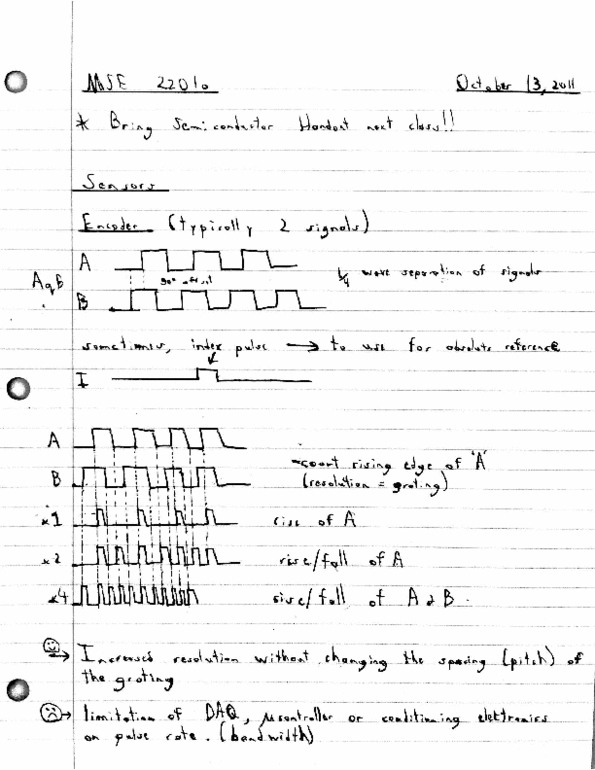 MSE 2201a
October 13, 2011
* Bring Semiconductor Handout next class!!
Sensors
Encoder (typically 2 signals)
A
AqB
90° offset
1/4 wave separation of signals
B
sometimes, index pulse → to use for absolute reference
I
A
-count rising edge of 'A'
B
(resolution = grating)
x1
rise of A
x2
rise/fall of A
x4
rise/fall of A & B
Increased resolution without changing the spacing (pitch) of
the grating
limitation of DAQ, μcontroller or conditioning electronics
on pulse rate. (bandwidth)